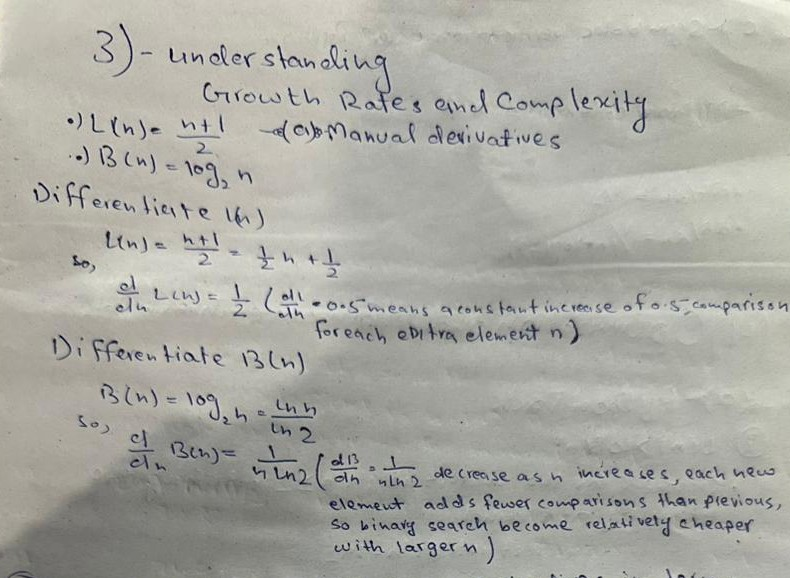 3)- understanding
Growth Rates and Complexity
•) L(n) = n+1/2 → (a) Manual derivatives
•) B(n) = log₂ n
Differentiate L(n)
L(n) = n+1/2 = 1/2 n + 1/2
so,
d/dn L(n) = 1/2 (dL/dn = 0.5 means a constant increase of 0.5 comparison
for each extra element n)
Differentiate B(n)
B(n) = log₂ n = ln n/ln 2
so,
d/dn B(n) = 1/n ln 2 (dB/dn = 1/n ln 2 decrease as n increases, each new
element adds fewer comparisons than previous,
so binary search become relatively cheaper
with larger n)